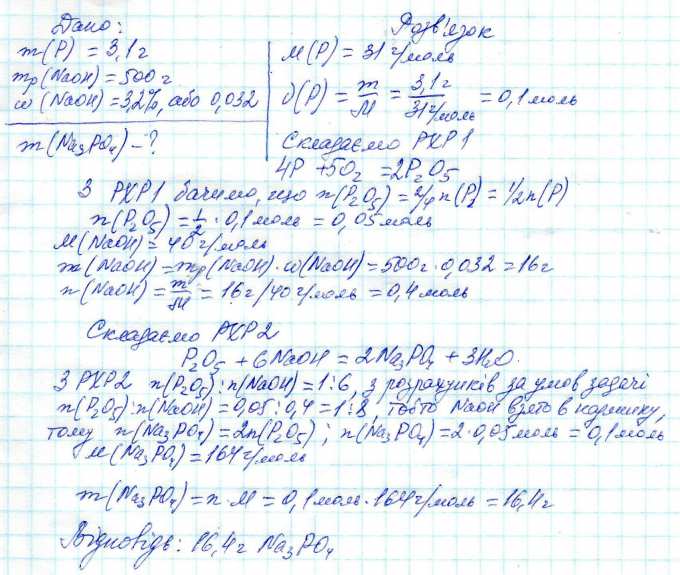 Дано:
m(P) = 3,1г
mр(NaOH) = 500г
ω(NaOH) = 3,2%, або 0,032
m(Na₃PO₄) – ?
Розв'язок
M(P) = 31 г/моль
υ(P) = m/M = 3,1г/31г/моль = 0,1 моль
Складаємо РХР1
4P + 5O₂ = 2P₂O₅
З РХР1 бачимо, що n(P₂O₅) = 2/4 n(P) = 1/2 n(P)
n(P₂O₅) = 1/2 · 0,1 моль = 0,05 моль
M(NaOH) = 40 г/моль
m(NaOH) = mр(NaOH) · ω(NaOH) = 500г · 0,032 = 16г
n(NaOH) = m/M = 16г/40г/моль = 0,4 моль
Складаємо РХР2
P₂O₅ + 6NaOH = 2Na₃PO₄ + 3H₂O.
З РХР2 n(P₂O₅) : n(NaOH) = 1:6, з розрахунків за умов задачі
n(P₂O₅) : n(NaOH) = 0,05 : 0,4 = 1:8, тобто NaOH взято в надлишку,
тому n(Na₃PO₄) = 2n(P₂O₅) ; n(Na₃PO₄) = 2 · 0,05 моль = 0,1 моль
M(Na₃PO₄) = 164 г/моль
m(Na₃PO₄) = n · M = 0,1 моль · 164 г/моль = 16,4г
Відповідь: 16,4г Na₃PO₄